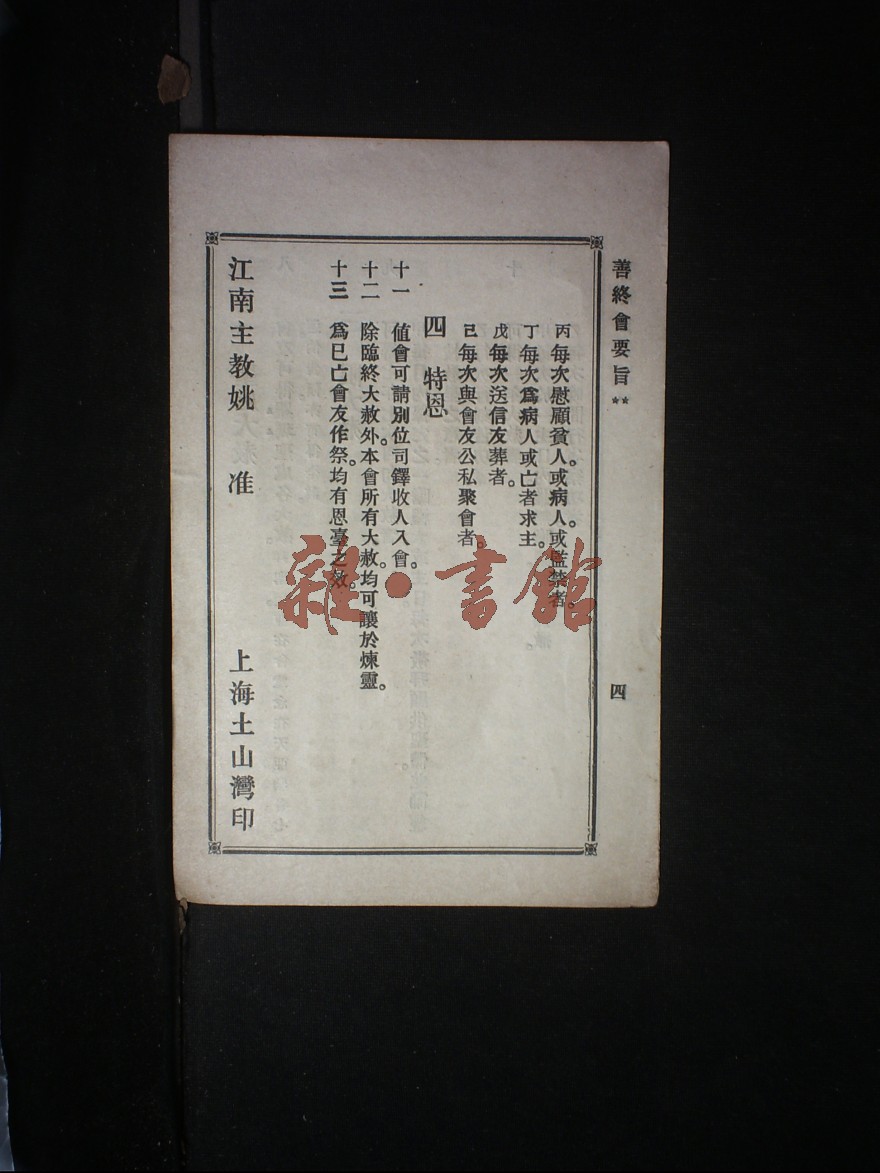 善終會要旨 ** 四
丙 每次慰顧貧人。或病人。或監禁者。
丁 每次爲病人或亡者求主。
戊 每次送信友葬者。
己 每次與會友公私聚會者。
四 特恩
十一 値會可請別位司鐸收人入會。
十二 除臨終大赦外。本會所有大赦。均可讓於煉靈。
十三 爲已亡會友作祭。均有恩臺之效。
江南主教姚 准 上海土山灣印
雜·書館